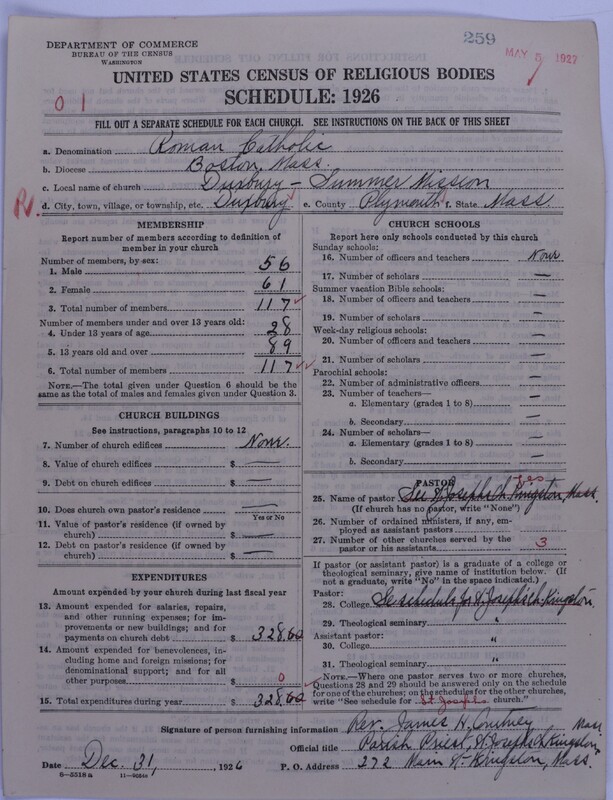 259
MAY 5 1927
DEPARTMENT OF COMMERCE
BUREAU OF THE CENSUS
WASHINGTON
UNITED STATES CENSUS OF RELIGIOUS BODIES
SCHEDULE: 1926
0 1
FILL OUT A SEPARATE SCHEDULE FOR EACH CHURCH. SEE INSTRUCTIONS ON THE BACK OF THIS SHEET
a. Denomination Roman Catholic
b. Diocese Boston, Mass.
c. Local name of church Duxbury - Summer Mission
R. d. City, town, village, or township, etc. Duxbury e. County Plymouth f. State Mass.
MEMBERSHIP
Report number of members according to definition of
member in your church
Number of members, by sex:
1. Male 56
2. Female 61
3. Total number of members 117
Number of members under and over 13 years old:
4. Under 13 years of age 28
5. 13 years old and over 89
6. Total number of members 117
NOTE.—The total given under Question 6 should be
same as the total of males and females given under Question 3.
CHURCH BUILDINGS
See instructions, paragraphs 10 to 12
7. Number of church edifices None.
8. Value of church edifices $ —
9. Debt on church edifices $ —
10. Does church own pastor's residence —
Yes or No
11. Value of pastor's residence (if owned by
church) $ —
12. Debt on pastor's residence (if owned by
church) $ —
EXPENDITURES
Amount expended by your church during last fiscal year
13. Amount expended for salaries, repairs,
and other running expenses; for im-
provements or new buildings; and for
payments on church debt $ 328.60
14. Amount expended for benevolences,
including home and foreign missions; for
denominational support; and for all
other purposes $ 0
15. Total expenditures during year $ 328.60
CHURCH SCHOOLS
Report here only schools conducted by this church
Sunday schools:
16. Number of officers and teachers None
17. Number of scholars —
Summer vacation Bible schools:
18. Number of officers and teachers —
19. Number of scholars —
Week-day religious schools:
20. Number of officers and teachers —
21. Number of scholars —
Parochial schools:
22. Number of administrative officers —
23. Number of teachers—
a. Elementary (grades 1 to 8) —
b. Secondary —
24. Number of scholars—
a. Elementary (grades 1 to 8) —
b. Secondary —
PASTOR
yes
25. Name of pastor See St Josephs Ch Kingston, Mass.
(If church has no pastor, write "None")
26. Number of ordained ministers, if any, em-
ployed as assistant pastors "
27. Number of other churches served by the
pastor or his assistants 3
If pastor (or assistant pastor) is a graduate of a college or
theological seminary, give name of institution below. (If
not a graduate, write "No" in the space indicated.)
Pastor:
28. College See schedule for St Josephs ch. Kingston,
29. Theological seminary "
Assistant pastor:
30. College "
31. Theological seminary "
NOTE.—Where one pastor serves two or more churches,
Questions 28 and 29 should be answered only on the schedule
for one of the churches; on the schedules for the other churches,
write "See schedule for St Josephs church."
Signature of person furnishing information Rev. James H.
Official title Parish Priest, St Josephs ch Kingston, Mass
Date Dec. 31, 1926 P. O. Address 272 Main St - Kingston, Mass.
6—5518 a